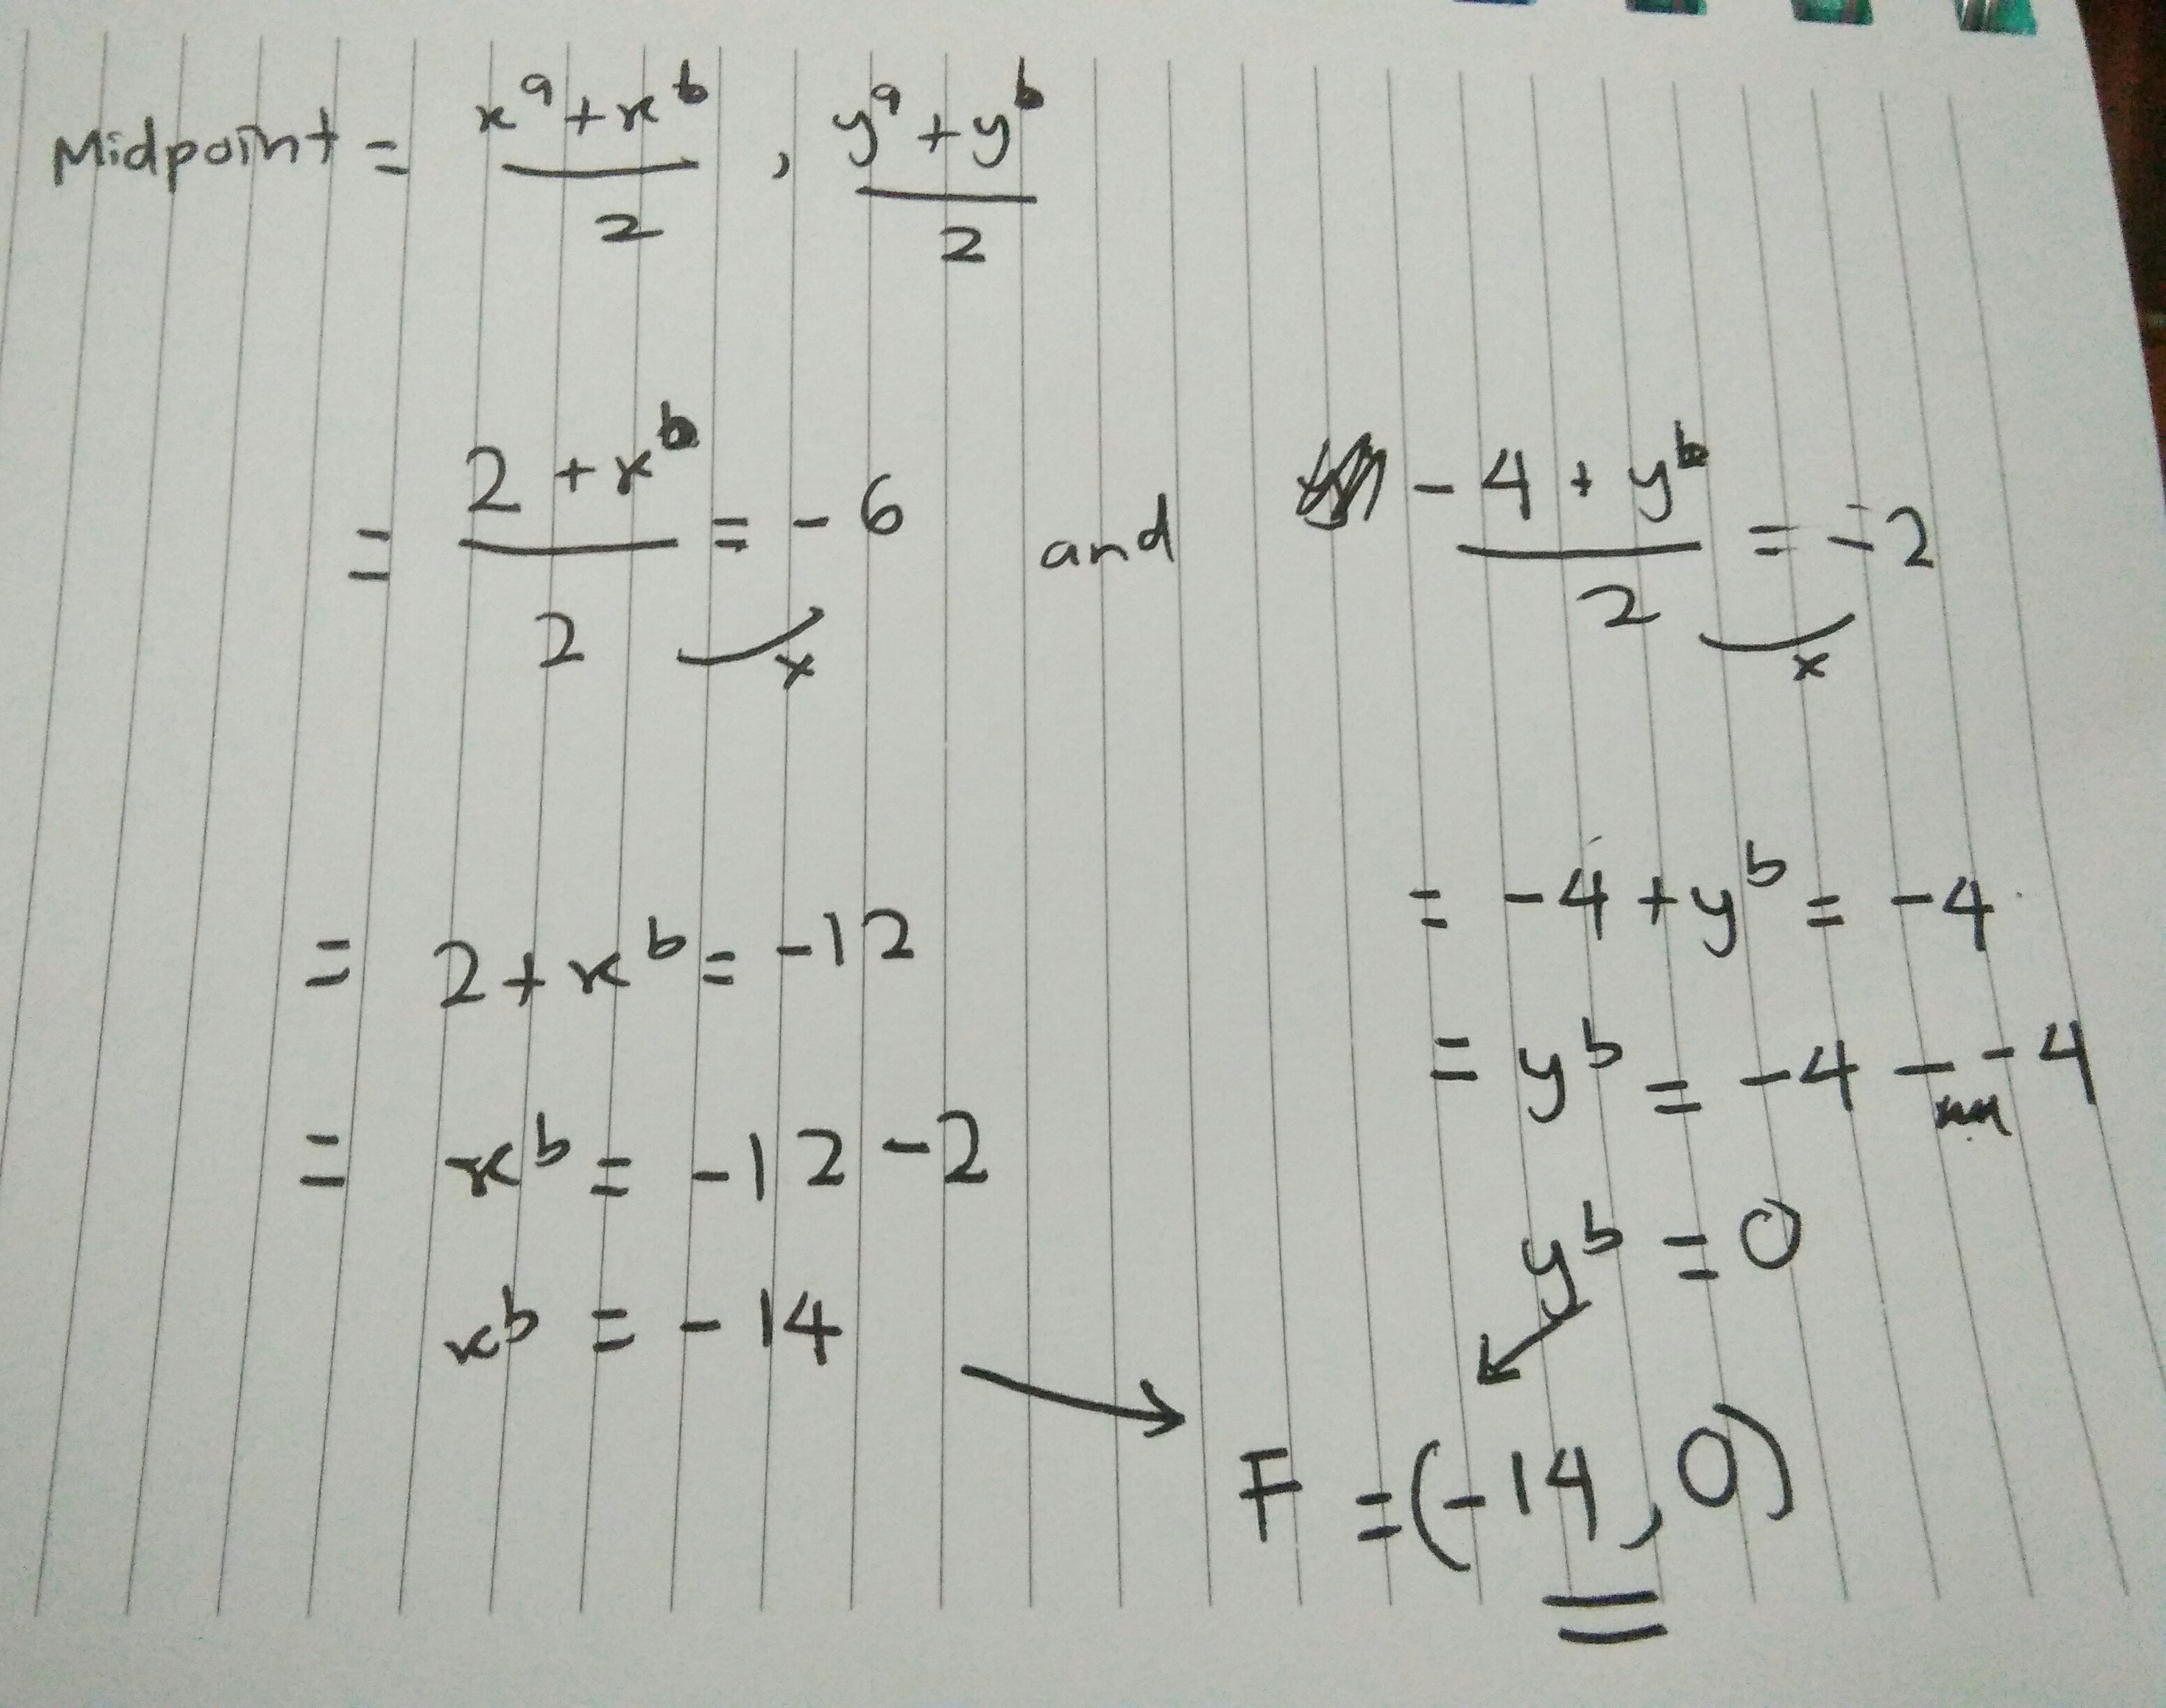 Midpoint = x^a + x^b / 2 , y^a + y^b / 2
= 2 + x^b / 2 = -6 and -4 + y^b / 2 = -2
x x
= 2 + x^b = -12
= x^b = -12 - 2
x^b = -14
= -4 + y^b = -4
= y^b = -4 - -4
y^b = 0
F = (-14, 0)